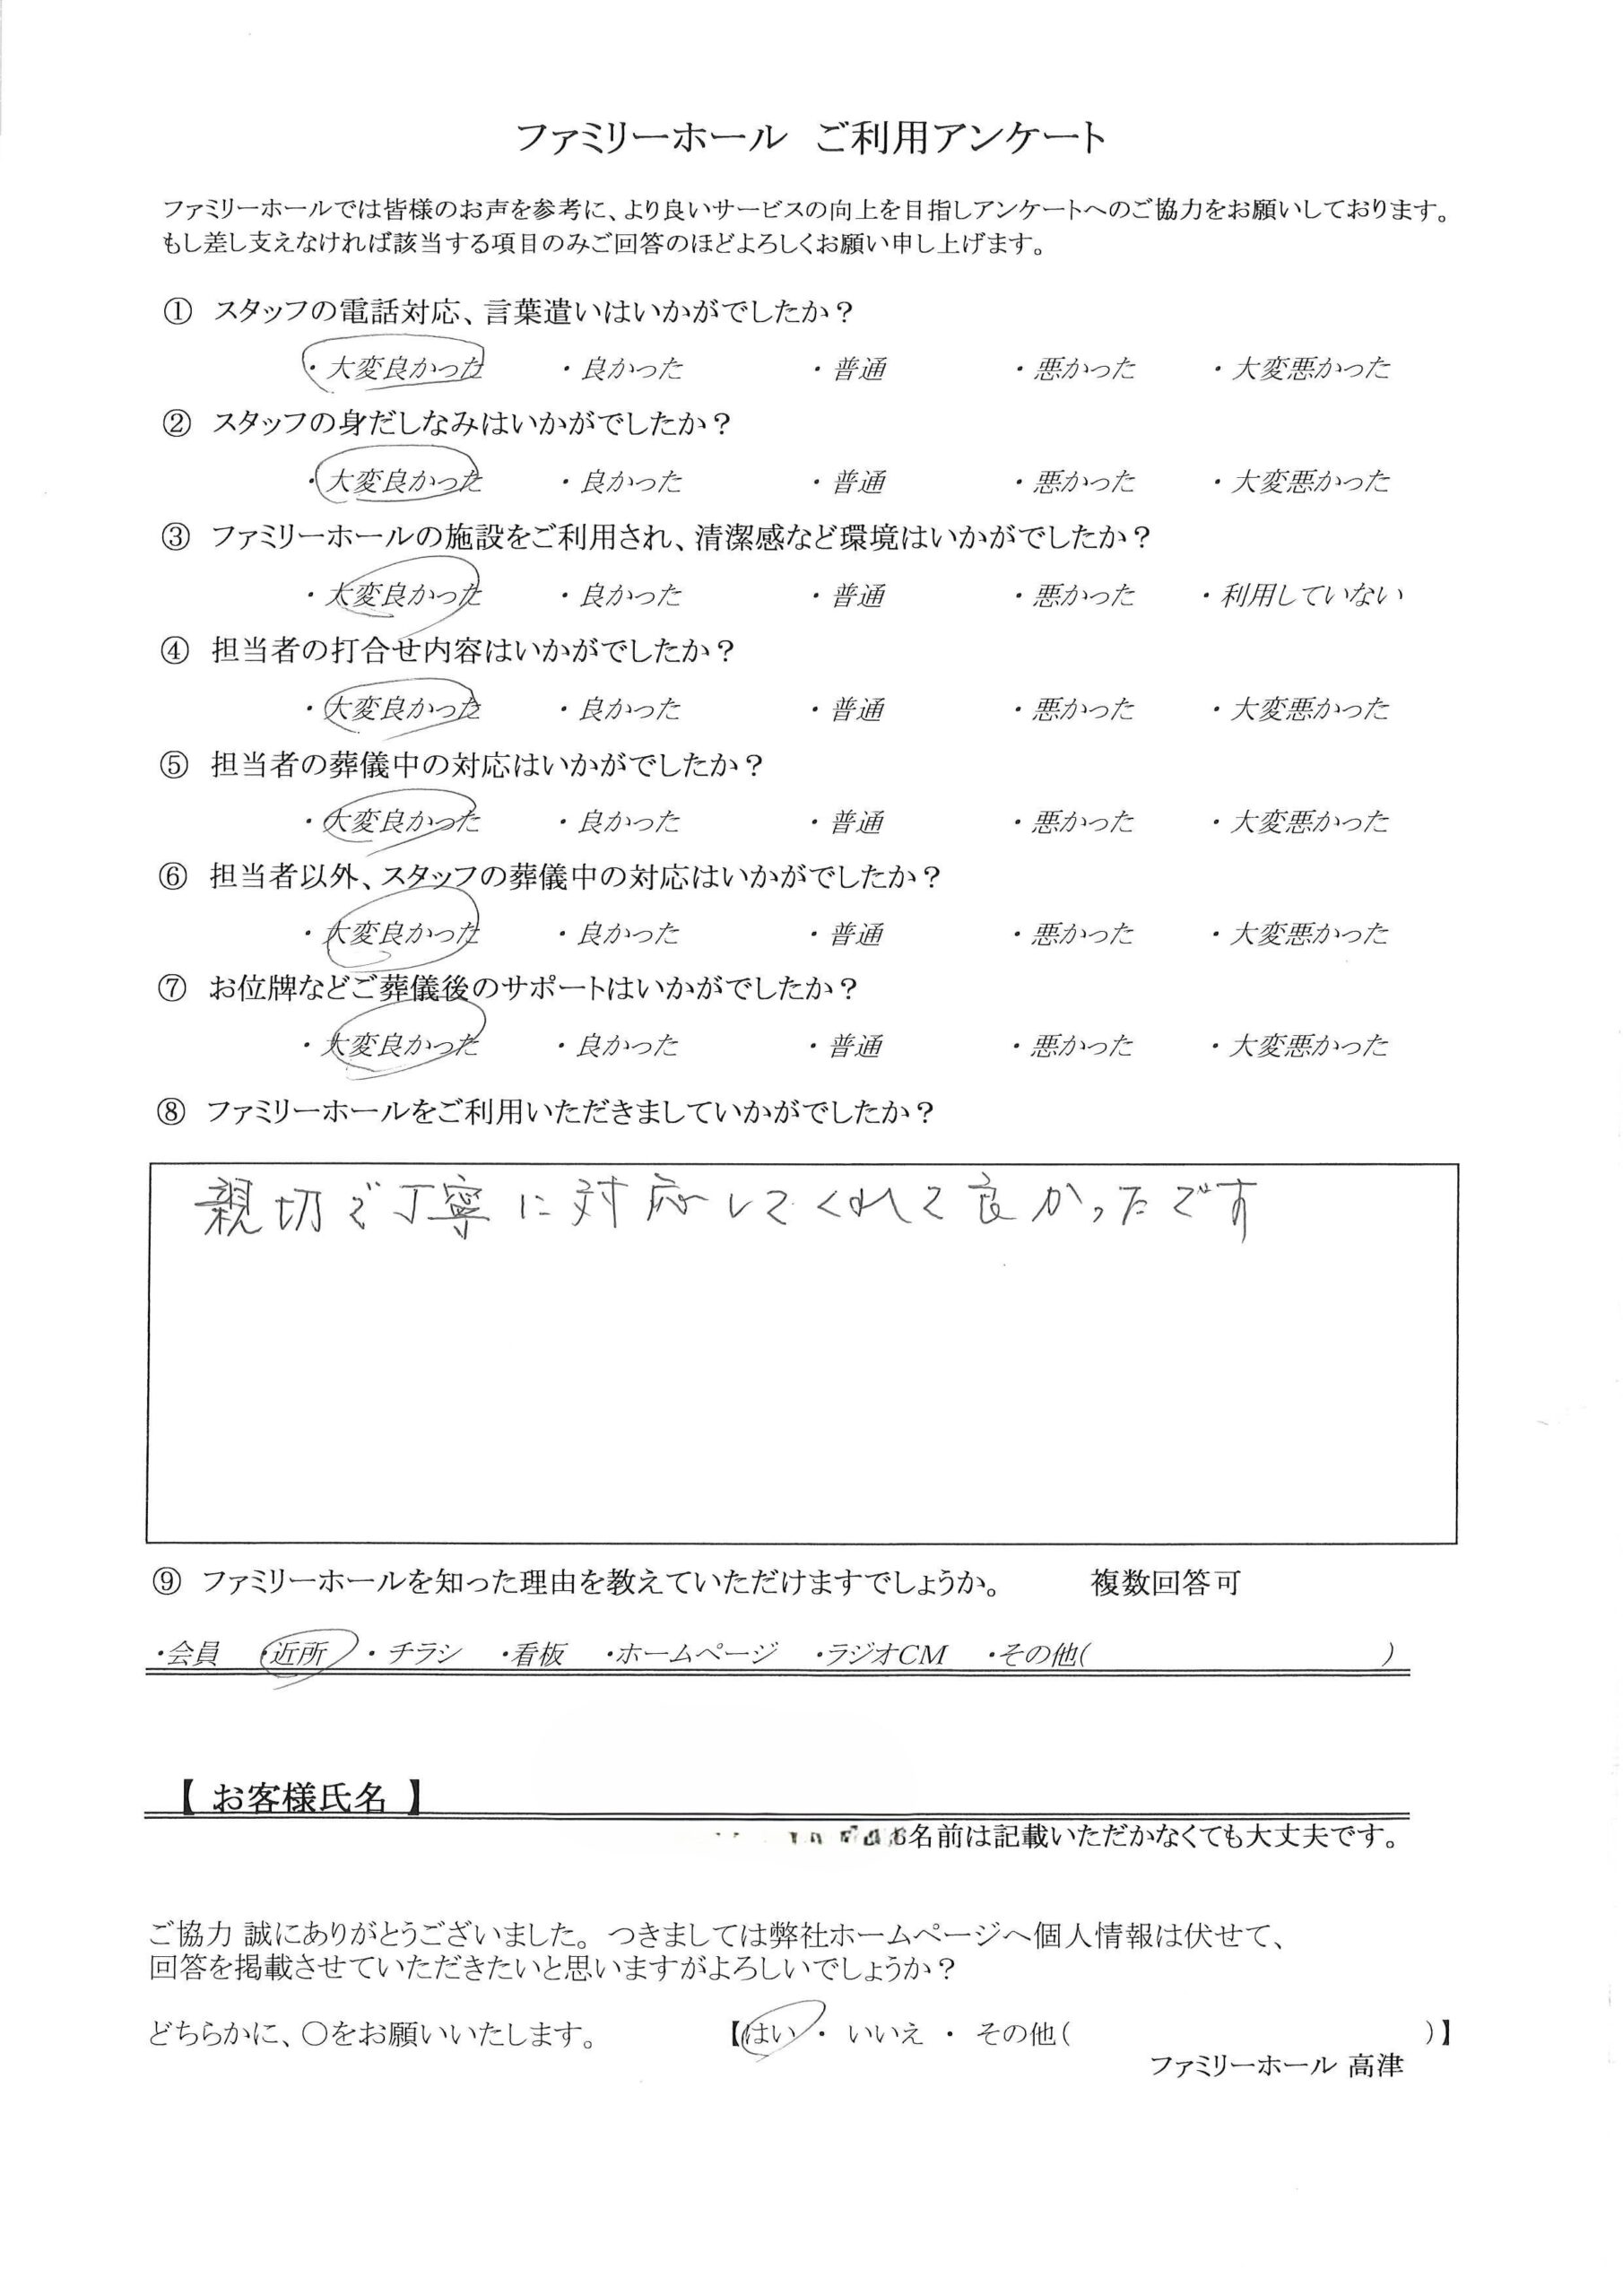 ファミリーホール　ご利用アンケート
ファミリーホールでは皆様のお声を参考に、より良いサービスの向上を目指しアンケートへのご協力をお願いしております。
もし差し支えなければ該当する項目のみご回答のほどよろしくお願い申し上げます。
① スタッフの電話対応、言葉遣いはいかがでしたか？
・大変良かった ・良かった ・普通 ・悪かった ・大変悪かった
② スタッフの身だしなみはいかがでしたか？
・大変良かった ・良かった ・普通 ・悪かった ・大変悪かった
③ ファミリーホールの施設をご利用され、清潔感など環境はいかがでしたか？
・大変良かった ・良かった ・普通 ・悪かった ・利用していない
④ 担当者の打合せ内容はいかがでしたか？
・大変良かった ・良かった ・普通 ・悪かった ・大変悪かった
⑤ 担当者の葬儀中の対応はいかがでしたか？
・大変良かった ・良かった ・普通 ・悪かった ・大変悪かった
⑥ 担当者以外、スタッフの葬儀中の対応はいかがでしたか？
・大変良かった ・良かった ・普通 ・悪かった ・大変悪かった
⑦ お位牌などご葬儀後のサポートはいかがでしたか？
・大変良かった ・良かった ・普通 ・悪かった ・大変悪かった
⑧ ファミリーホールをご利用いただきましていかがでしたか？
親切で丁寧に対応してくれて良かったです
⑨ ファミリーホールを知った理由を教えていただけますでしょうか。 複数回答可
・会員 ・近所 ・チラシ ・看板 ・ホームページ ・ラジオCM ・その他( )
【 お客様氏名 】
名前は記載いただかなくても大丈夫です。
ご協力 誠にありがとうございました。つきましては弊社ホームページへ個人情報は伏せて、
回答を掲載させていただきたいと思いますがよろしいでしょうか？
どちらかに、〇をお願いいたします。 【はい ・ いいえ ・ その他( )】
ファミリーホール 高津